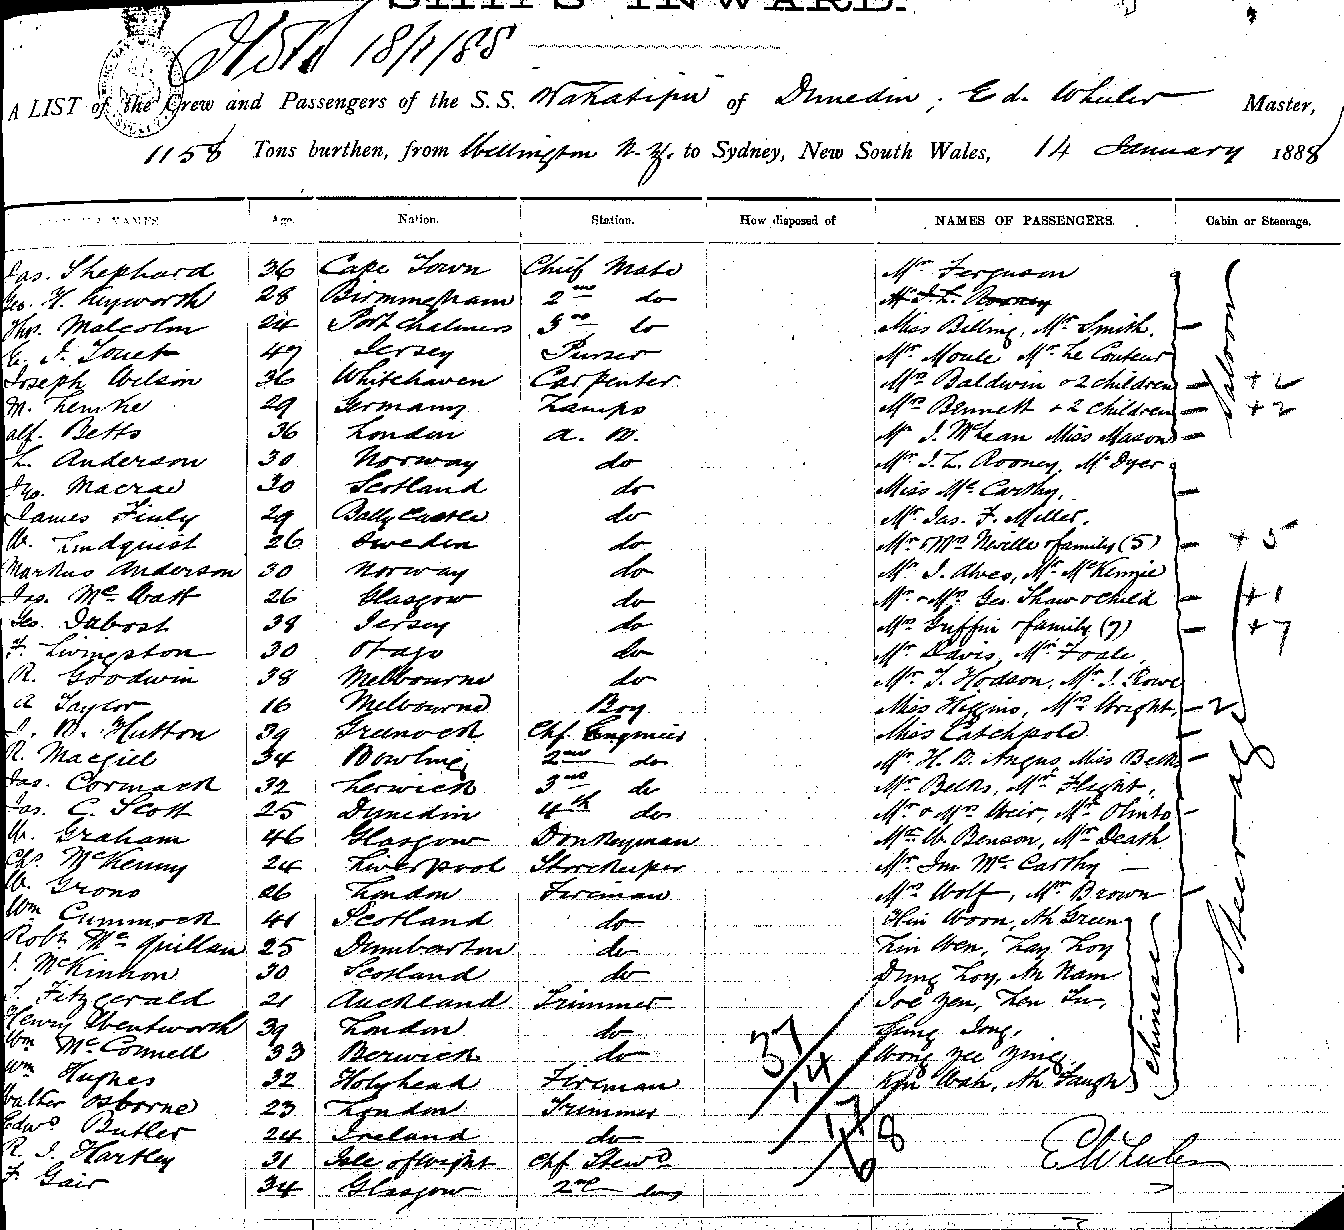 SHIPS INWARD.
18/1/88
A LIST of the Crew and Passengers of the S.S. Wakatipu of Dunedin, Ed. Wheeler Master,
1158 Tons burthen, from Wellington N.Z. to Sydney, New South Wales, 14 January 1888
NAMES Age. Nation. Station. How disposed of NAMES OF PASSENGERS. Cabin or Steerage.
Jas. Shephard 36 Cape Town Chief Mate Mr Ferguson
Geo. H. 28 Birmingham 2nd do Mr J. L. Rooney
Thos. Malcolm 24 Port Chalmers 3rd do Miss Belling, Mr Smith. –
47 Jersey Purser Mr Moule Mr Le Couteur
Joseph Wilson 36 Whitehaven Carpenter Mrs Baldwin & 2 children – + 2
M. Lemke 29 Germany Lamps Mrs Bennett & 2 children – + 2
Alf. Betts 36 London A. B. Mr J. McLean Miss Mason –
L. Anderson 30 Norway do Mr J. L. Rooney, Mr Dyer
Jno. Macrae 30 Scotland do Miss McCarthy. –
James Finly 29 Ballycastle do Mr Jas. F. Miller.
W. Lindquist 26 Sweden do Mr & Mrs Neville & family (5) – + 5
Markus Anderson 30 Norway do Mr J. Alves, Mr McKenzie
Jas. McWatt 26 Glasgow do Mr & Mrs Geo. Shaw & child – + 1
Geo. Dabost 38 Jersey do Mrs Griffin & family (7) – + 7
F. Livingston 30 Otago do Mr Davis, Mr Foale,
R. Goodwin 38 Melbourne do Mr T. Hodson, Mr J. Rowe
A Taylor 16 Melbourne Boy Miss Higgins, Mrs Wright, – 2
J. W. Hutton 39 Greenock Chf. Engineer Miss Catchpole –
R. Macgill 34 Bowling 2nd do Mr H. B. Angus, Miss Becks –
Jas. Cormack 32 Lerwick 3rd do Mr Becks, Mr Flight,
Jas. C. Scott 25 Dunedin 4th do Mr & Mrs Weir, Mr Olinto –
W. Graham 46 Glasgow Donkeyman Mr W. Benson, Mr Death
Chs. McKenny 24 Liverpool Storekeeper Mr Jno McCarthy –
W. Grono 26 London Fireman Mrs Wolf, Mr Brown
Wm Cummock 41 Scotland do Hin Woon, Ah Green
Robt McQuillan 25 Dumbarton do Lin Wen, Lay Loy
J. McKinnon 30 Scotland do Dung Loy, Ah Nam
J. Fitzgerald 21 Auckland Trimmer Joe Yen,
Henry Wentworth 39 London do
Wm McConnell 33 Berwick do Wong Yee Ying
Wm Hughes 32 Holyhead Fireman Wah,
Walter Osborne 23 London Trimmer
Edwd Butler 24 Ireland do
R. J. Hartley 31 Isle of Wight Chf Stewd
F. Gair 34 Glasgow 2nd do
Saloon
Steerage
Chinese
37
14
17
68
E Wheeler